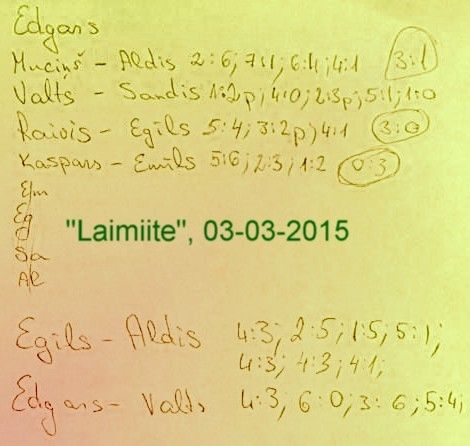 Edgars
Muciņš - Aldis 2:6; 7:1; 6:4; 4:1 3:1
Valts - Sandis 1:2p; 4:0; 2:3p; 5:1; 1:0
Raivis - Egils 5:4; 3:2p; 4:1 3:0
Kaspars - Emīls 5:6; 2:3; 1:2 0:3
Em
Eg
"Laimiite", 03-03-2015
Sa
Al
Egils - Aldis 4:3; 2:5; 1:5; 5:1;
4:3; 4:3; 4:1;
Edgars - Valts 4:3; 6:0; 3:6; 5:4;